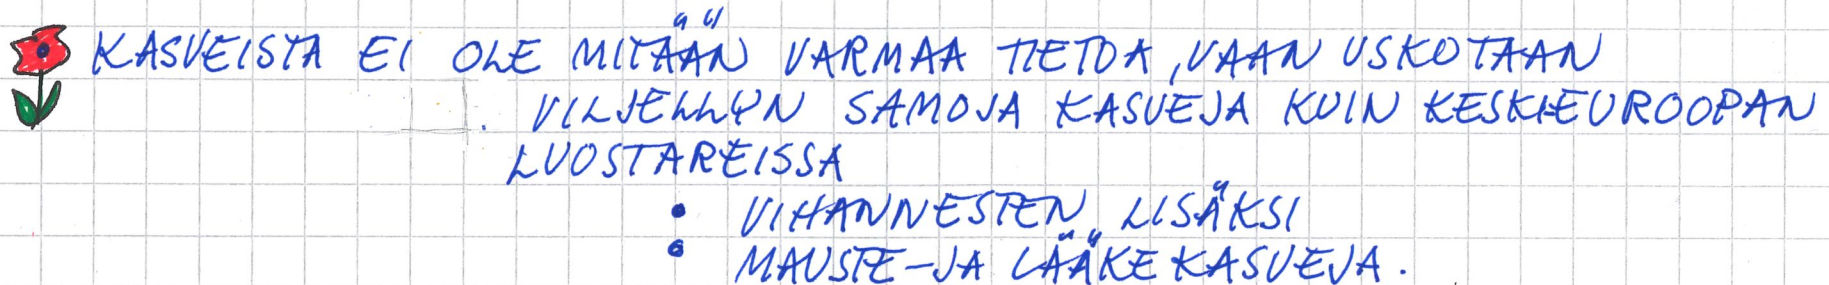 KASVEISTA EI OLE MITÄÄN VARMAA TIETOA, VAAN USKOTAAN
VILJELLYN SAMOJA KASVEJA KUIN KESKI-EUROOPAN
LUOSTAREISSA
• VIHANNESTEN LISÄKSI
• MAUSTE-JA LÄÄKEKASVEJA.